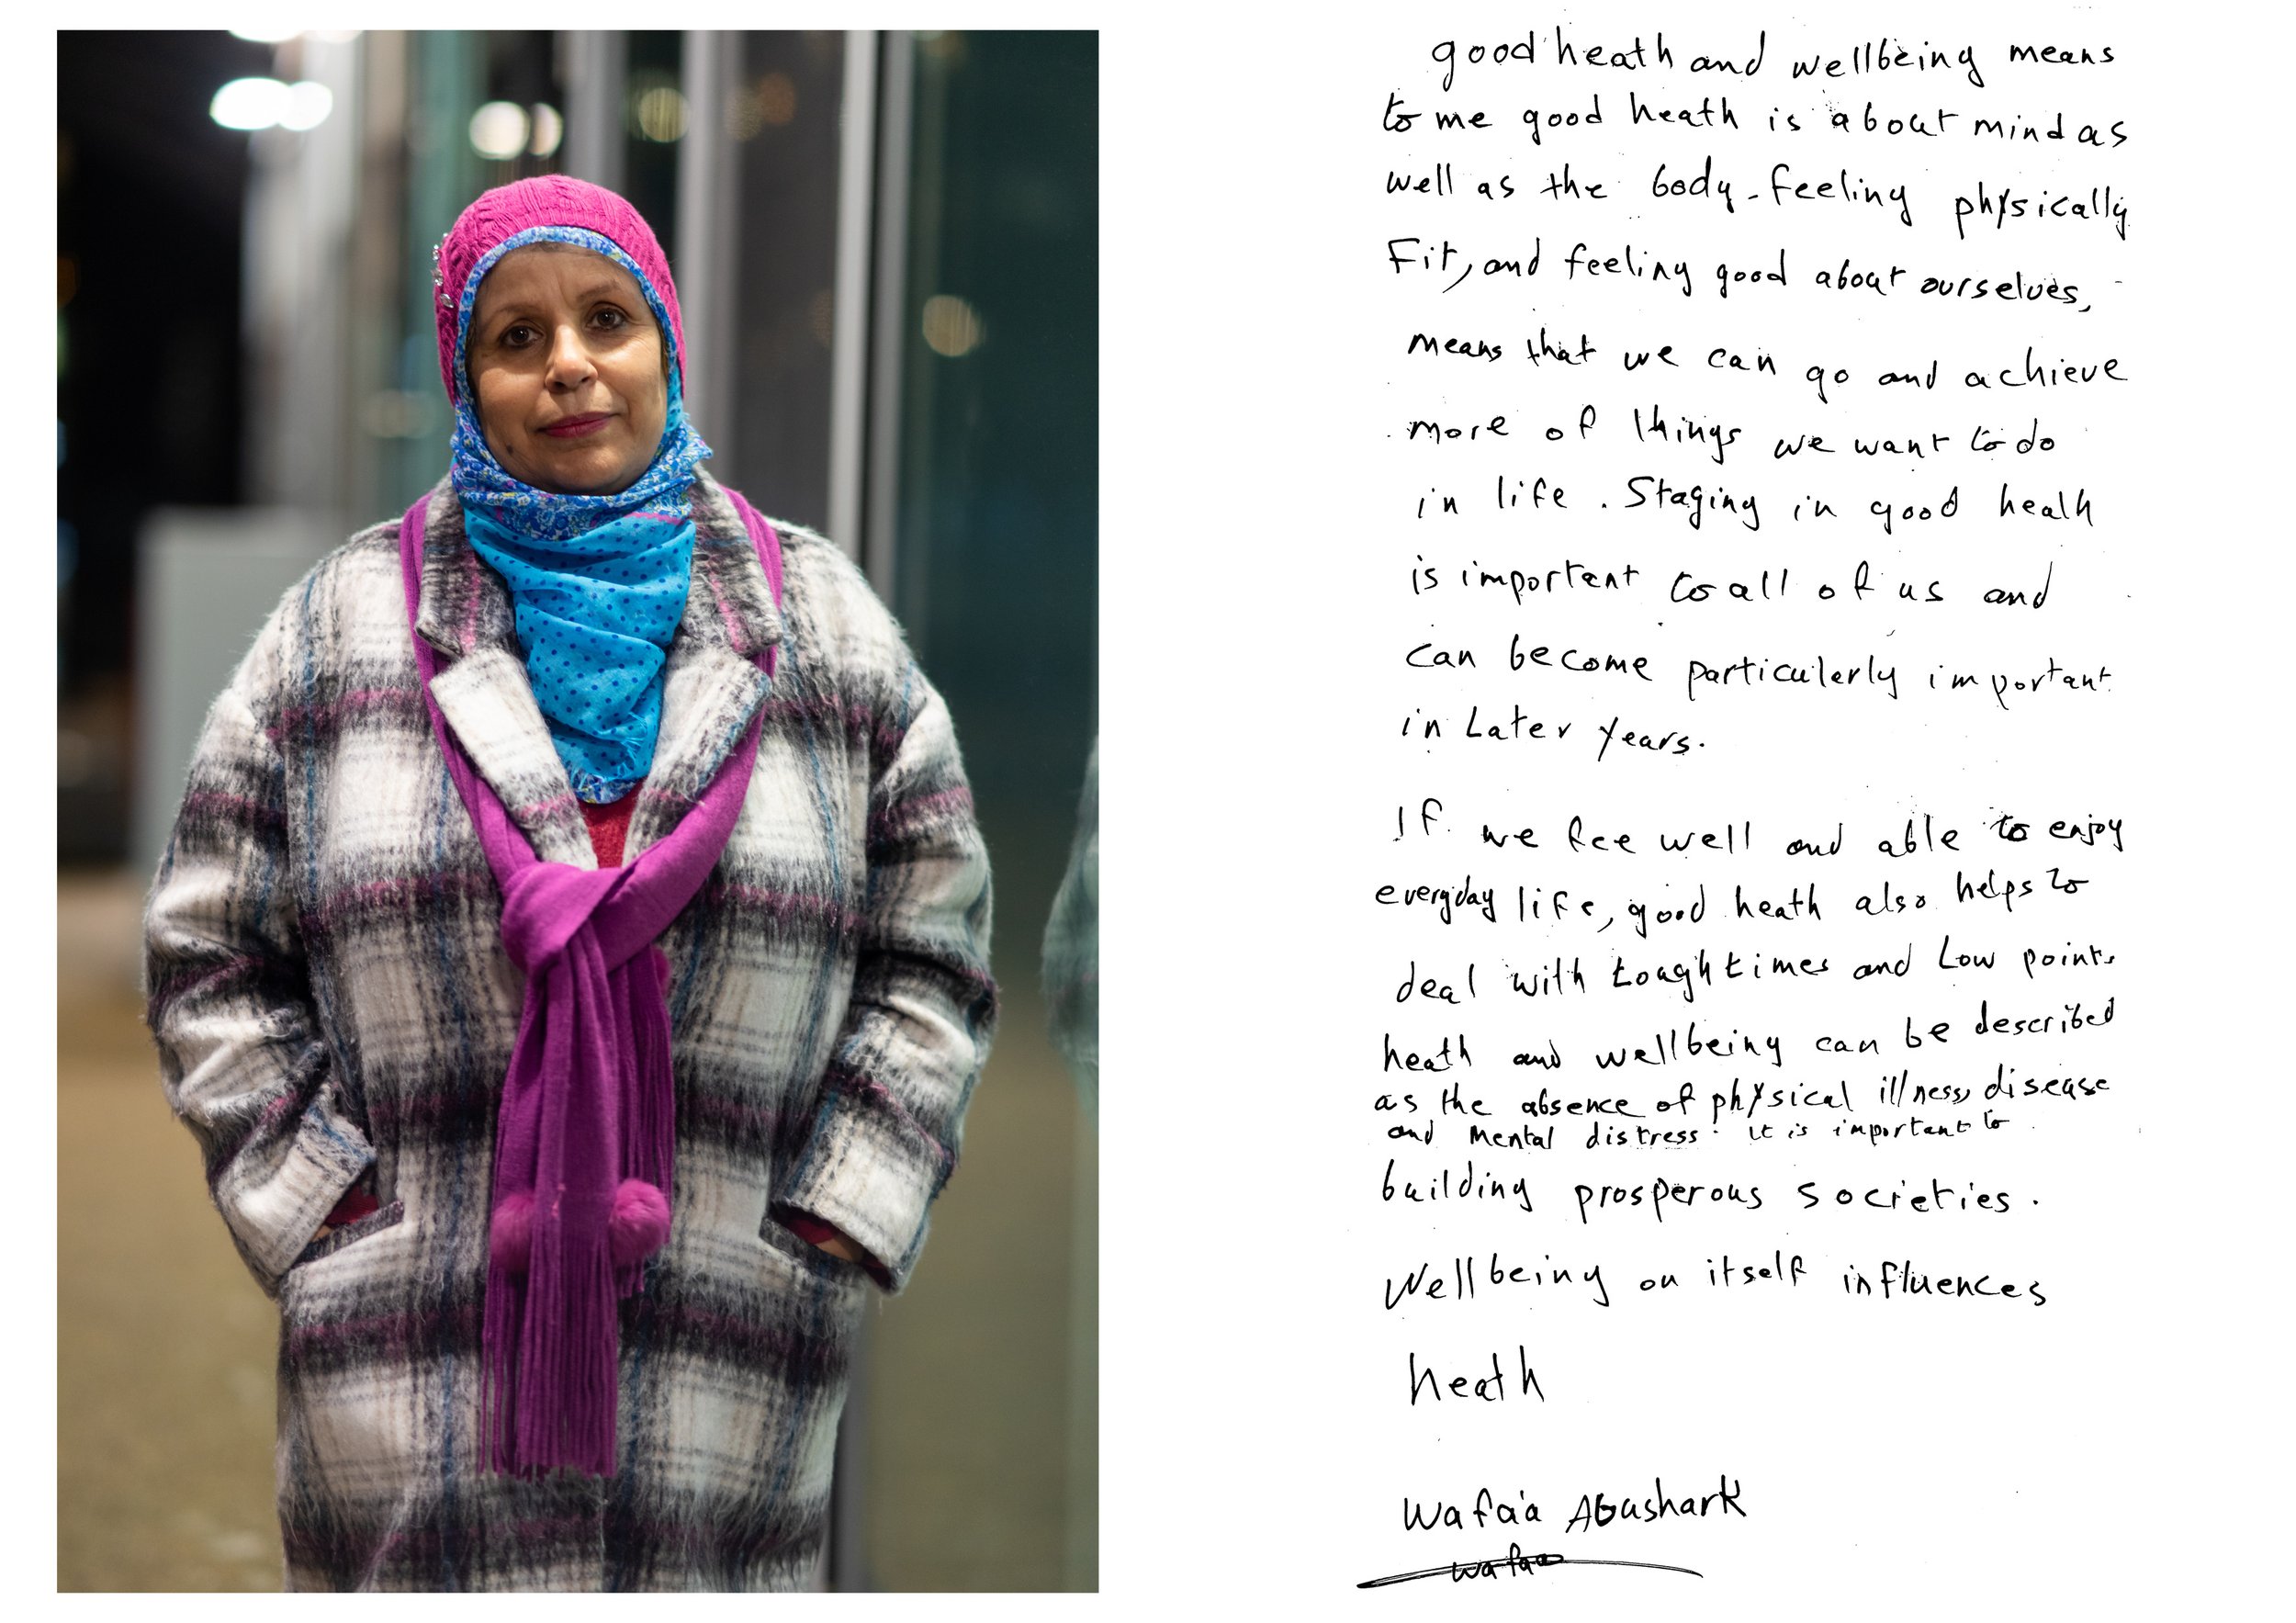 good heath and wellbeing means
to me good heath is about mind as
well as the body - feeling physically
Fit, and feeling good about ourselves,
means that we can go and achieve
more of things we want to do
in life . Staging in good healh
is important to all of us and
can become particularly important
in Later years.
If we fee well and able to enjoy
everyday life, good heath also helps to
deal with tough times and Low points
heath and wellbeing can be described
as the absence of physical illness, disease
and mental distress. it is important to
building prosperous societies.
Wellbeing on itself influences
heath
Wafa'a Abushark
wafaa